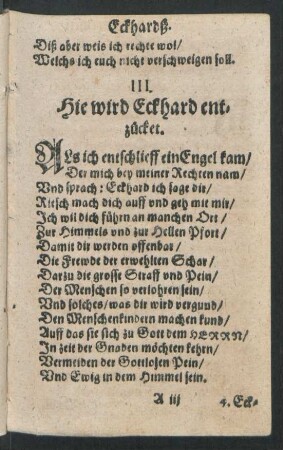 Eckhardß.
Diß aber weis ich rechte wol/
Welchs ich euch nicht verschweigen soll.
III.
Hie wird Eckhard ent-
zücket.
ALs ich entschlieff ein Engel kam/
Der mich bey meiner Rechten nam/
Vnd sprach: Eckhard ich sage dir/
Risch mach dich auff vnd geh mit mir/
Ich wil dich führn an manchen Ort/
Zur Himmels vnd zur Hellen Pfort/
Damit dir werden offenbar/
Die Frewde der erwehlten Schar/
Darzu die grosse Straff vnd Pein/
Der Menschen so verlohren sein/
Vnd solches/was dir wird vergund/
Den Menschenkindern machen kund/
Auff das sie sich zu Gott dem HERRN/
In zeit der Gnaden möchten kehrn/
Vermeiden der Gottlosen Pein/
Vnd Ewig in dem Himmel sein.
A iij
4. Eck-